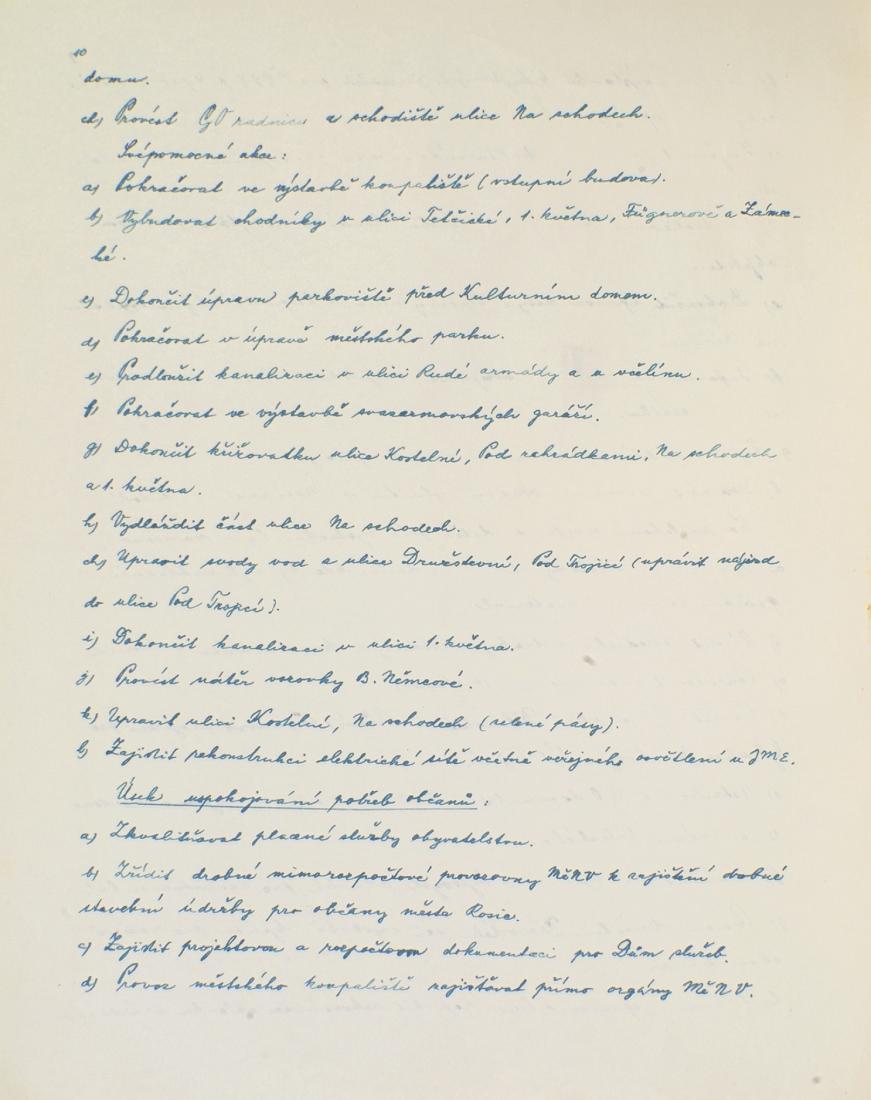 10
domu.
ch) Provést GO radnice a schodiště ulice Na schodech.
Svépomocné akce:
a) Pokračovat ve výstavbě koupaliště (vstupní budova).
b) Vybudovat chodníky v ulici Tetčické, 1. května, Fügnerově a Zámec-
ké.
c) Dokončit úpravu parkoviště před Kulturním domem.
d) Pokračovat v úpravě městského parku.
e) Prodloužit kanalizaci v ulici Rudé armády a u včelínu.
f) Pokračovat ve výstavbě svazarmovských garáží.
g) Dokončit křižovatku ulice Kostelní, Pod zahrádkami, Na schodech
a 1. května.
h) Vydláždit část ulice Na schodech.
ch) Upravit svody vod a ulice Družstevní, Pod Trojicí (upravit nájezd
do ulice Pod Trojicí).
i) Dokončit kanalizaci v ulici 1. května.
j) Provést nátěr vozovky B. Němcové.
k) Upravit ulici Kostelní, Na schodech (zelené pásy).
l) Zajistit rekonstrukci elektrické sítě včetně veřejného osvětlení u JME.
Úsek uspokojování potřeb občanů:
a) Zkvalitňovat placené služby obyvatelstvu.
b) Zřídit drobné mimorozpočtové provozovny MěNV k zajištění drobné
stavební údržby pro občany města Rosic.
c) Zajistit projektovou a rozpočtovou dokumentaci pro Dům služeb.
d) Provoz městského koupaliště zajišťovat přímo orgány MěNV.